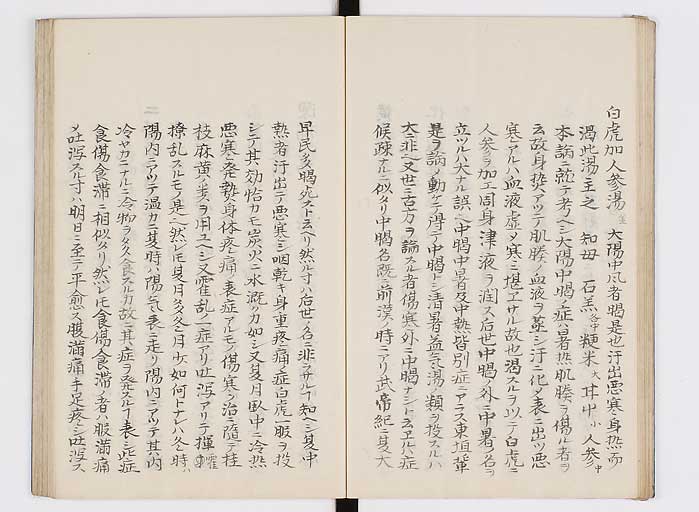 白虎加人参湯 大陽中風者暍是也汗出悪寒身熱而
渇此湯主之 知母 石羔各中 粳米大 甘中小 人参中
本論ニ就テ考ヘシ大陽中暍ノ症ハ暑熱肌膚ヲ傷ル者ヲ
云故身熱アツテ肌膚ノ血液ヲ蒸シ汗ニ化メ表ニ出ツ悪
寒アルハ血液虚メ寒ニ堪エサル故也渇スルヲ以テ白虎ニ
人参ヲ加エ固身津液ヲ潤ス后世中暍ノ外ニ中暑ノ名ヲ
立ツルハ大ナル誤ヘ中暍中暑及中熱皆別症ニアラス東垣輩
是ヲ論ノ動ヲ得テ中暍トシ清暑益気湯ノ類ヲ投スルハ
大ニ非ヘ又世ニ古方ヲ論スル者傷寒外ニ中暍ナシト云ヱルハ症
候疎ナルニ似タリ中暍名既ニ前漢ノ時ニアリ武帝紀ニ夏大
旱民多暍死ストミヘリ然ル寸ハ后世ノ名ニ非サルヿ知ヘシ夏中
熱者汗出テ悪寒シ咽乾キ身重疼痛ノ症白虎一服ヲ投
シテ其効恰カモ炭火ニ水漑クカ如シ又夏月臥中ニ冷熱
悪寒発熱身体疼痛ノ表症アルモノ傷寒ノ治ニ随テ桂
枝麻黄ノ類ヲ用ユヘシ又霍乱ノ一症アリ吐瀉アリテ揮霍
撩乱スルモノ是ヘ然レモ夏月多冬月少如何トナレハ冬時ハ
陽内ニアツテ温カニ夏時ハ陽気表ニ走リ陽内ニアツテ其内
冷ヤカニナルニ冷物ヲ多食スルカ故ニ其症ヲ発スルヿ表ニ此症
食傷食滞ニ相似タリ然レモ食傷食滞ノ者ハ腹満痛
メ吐瀉スル寸ハ明日ニ至テ平愈ス腹満痛手足疼シ吐瀉ス